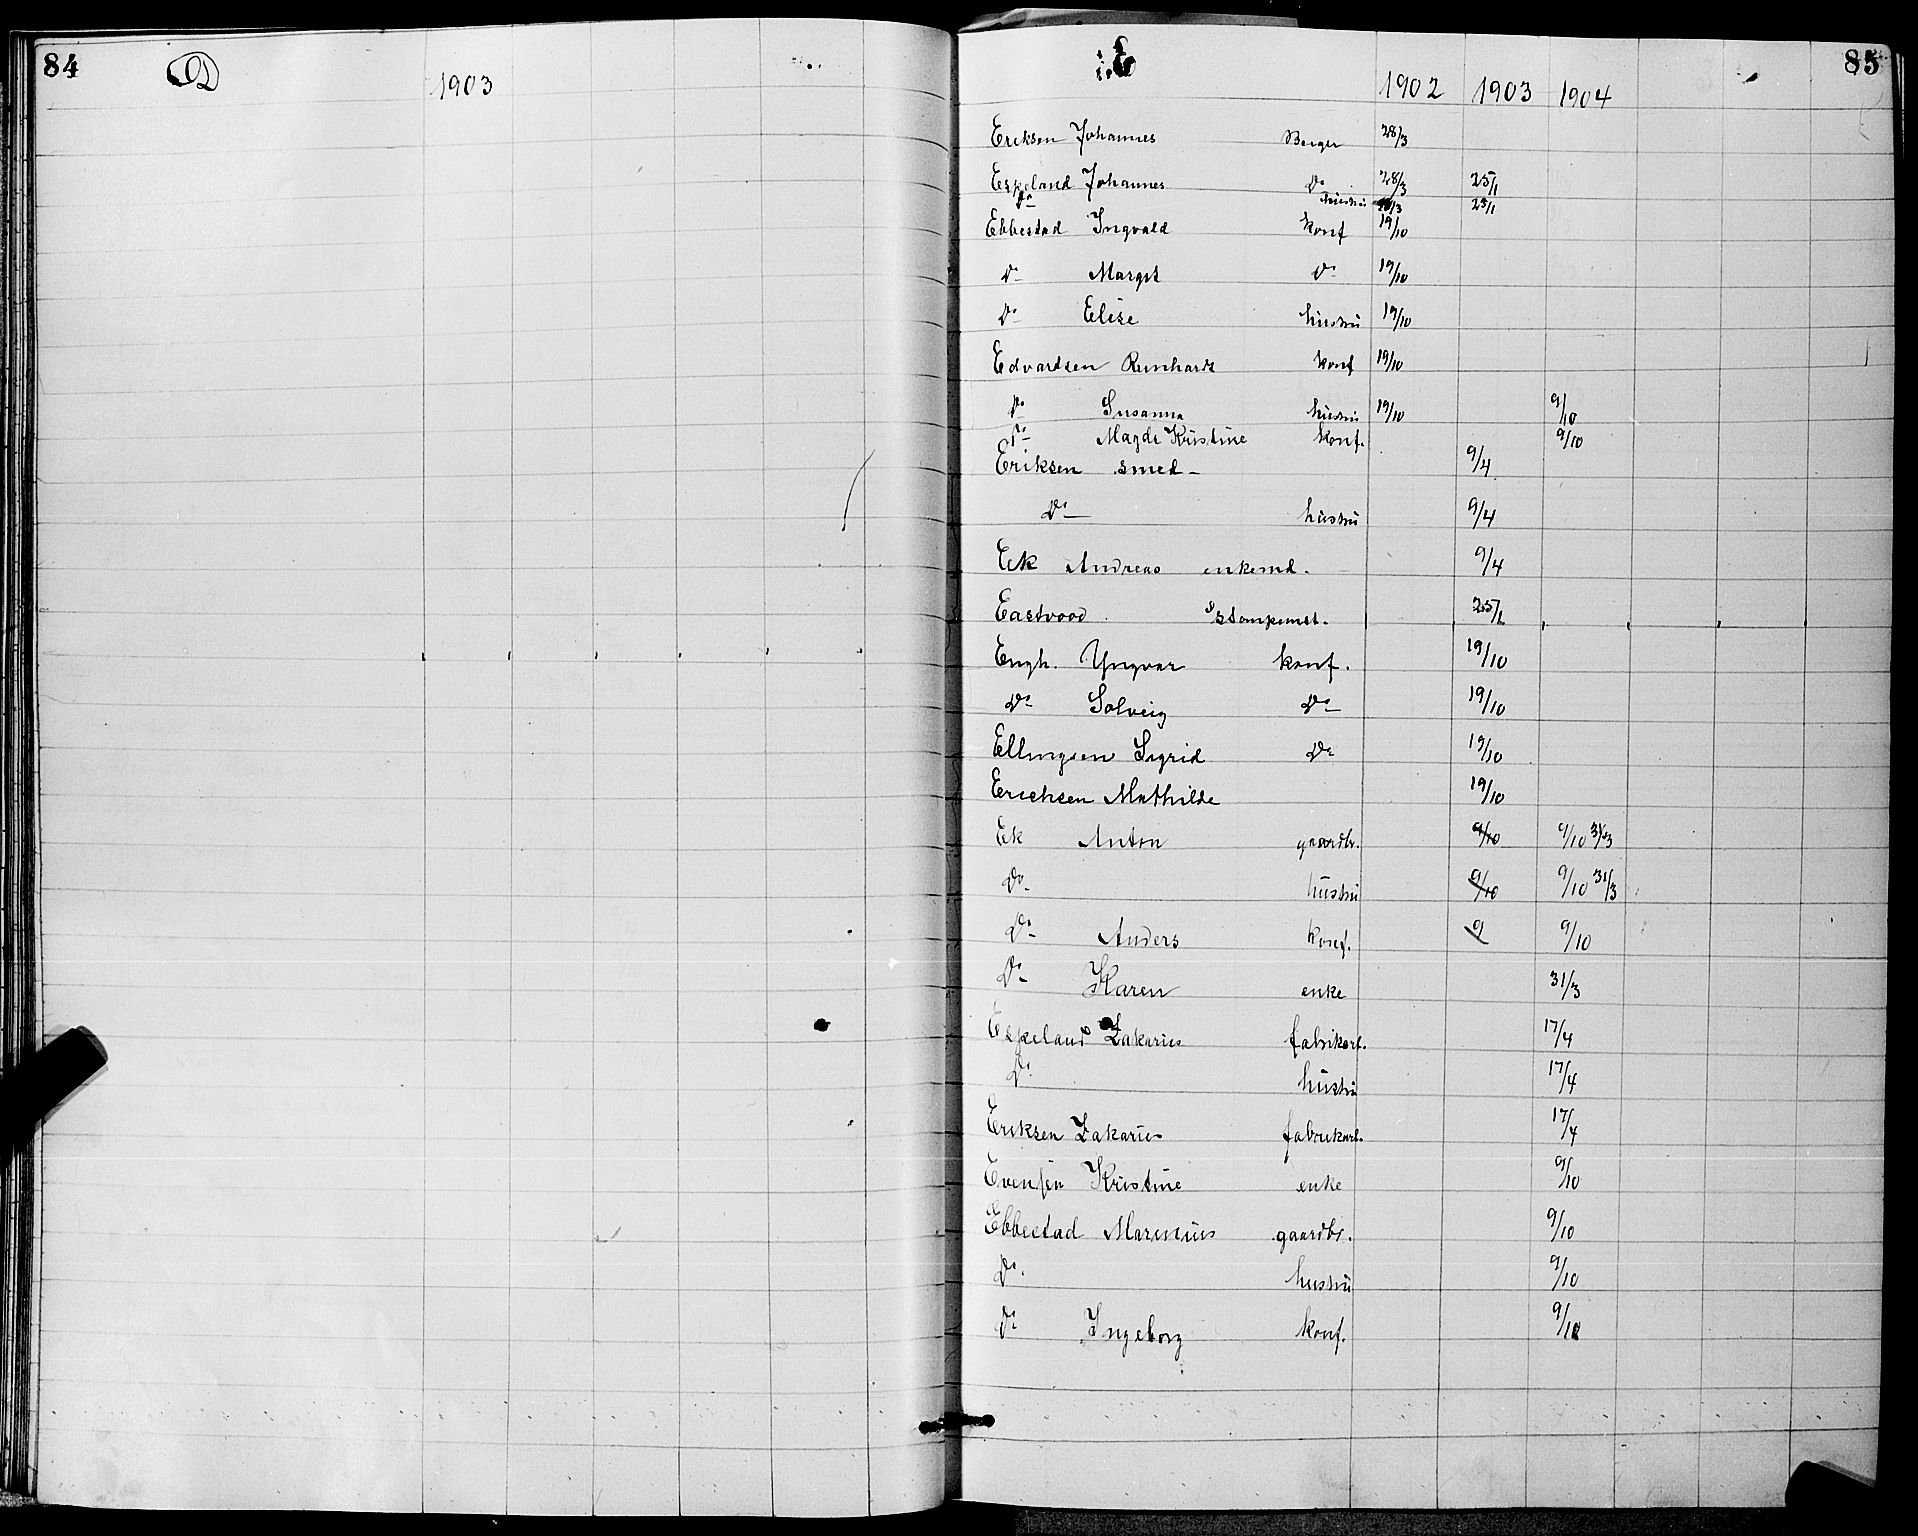 84 D 1903
E 85
1902 1903 1904
Eriksen Johannes Berger 28/3
Espeland Johannes Do 28/3 25/1
Do hustru 28/3 25/1
Ebbestad Ingvald konf 19/10
Do Margit Do 19/10
Do Elise hustru 19/10
Edvardsen Reinhardt konf 19/10
Do Susanna hustru 19/10 9/10
Do Magda Kristine konf. 9/10
Eriksen smed - 9/4
Do hustru 9/4
Eek Andreas enkemd. 9/4
Eastvood 25/1
Engh. Yngvar konf. 19/10
Do Solveig Do 19/10
Ellingsen Sigrid Do 19/10
Erichsen Mathilde 19/10
Ek Anton gaardbr. 9/10 9/10 31/3
Do hustru 9/10 9/10 31/3
Do Anders konf. 9 9/10
Do Karen enke 31/3
Espeland Zakarias fabrikarb. 17/4
Do hustru 17/4
Eriksen Zakarias fabrikarb. 17/4
Evensen Kristine enke 9/10
Ebbestad Marinius gaardbr. 9/10
Do. hustru 9/10
Do Ingeborg konf. 9/10